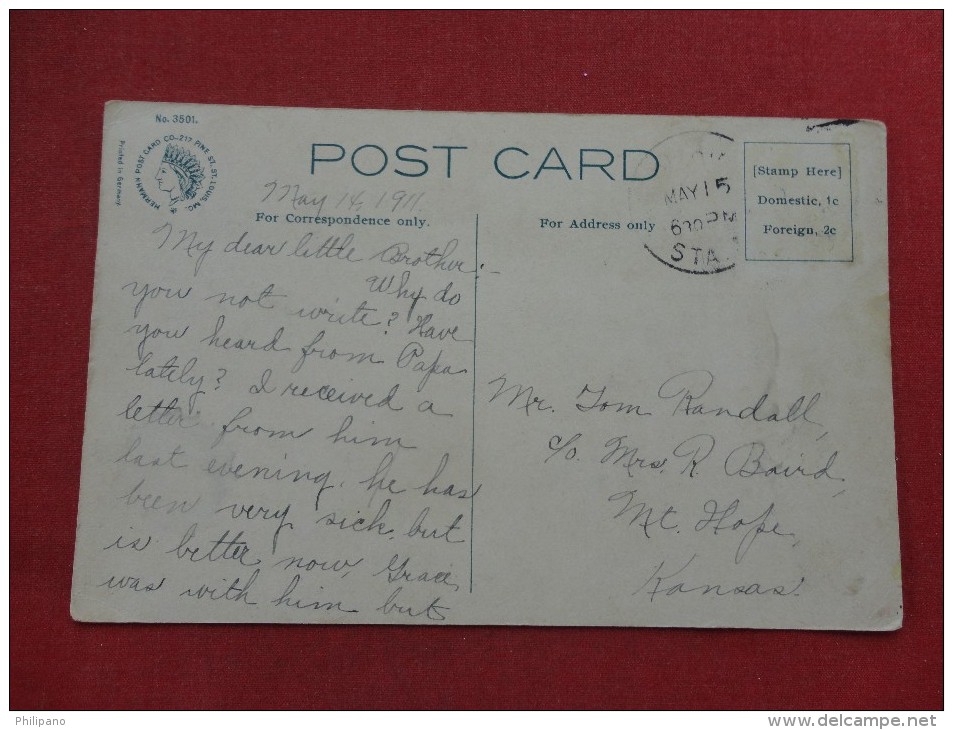 No. 3501.
HERMANN POST CARD CO-217 PINE ST. ST. LOUIS, MO.
Printed in Germany
POST CARD
May 14, 1911
For Correspondence only.
For Address only
MAY 15
6 PM
STA.
[Stamp Here]
Domestic, 1c
Foreign, 2c
My dear little Brother:-
Why do
you not write? Have
you heard from Papa
lately? I received a
letter from him
last evening. he has
been very sick, but
is better now, Grace
was with him but
Mr. Tom Randall,
c/o. Mrs. R. Baird,
Mt. Hope,
Kansas.
Philipano
www.delcampe.net